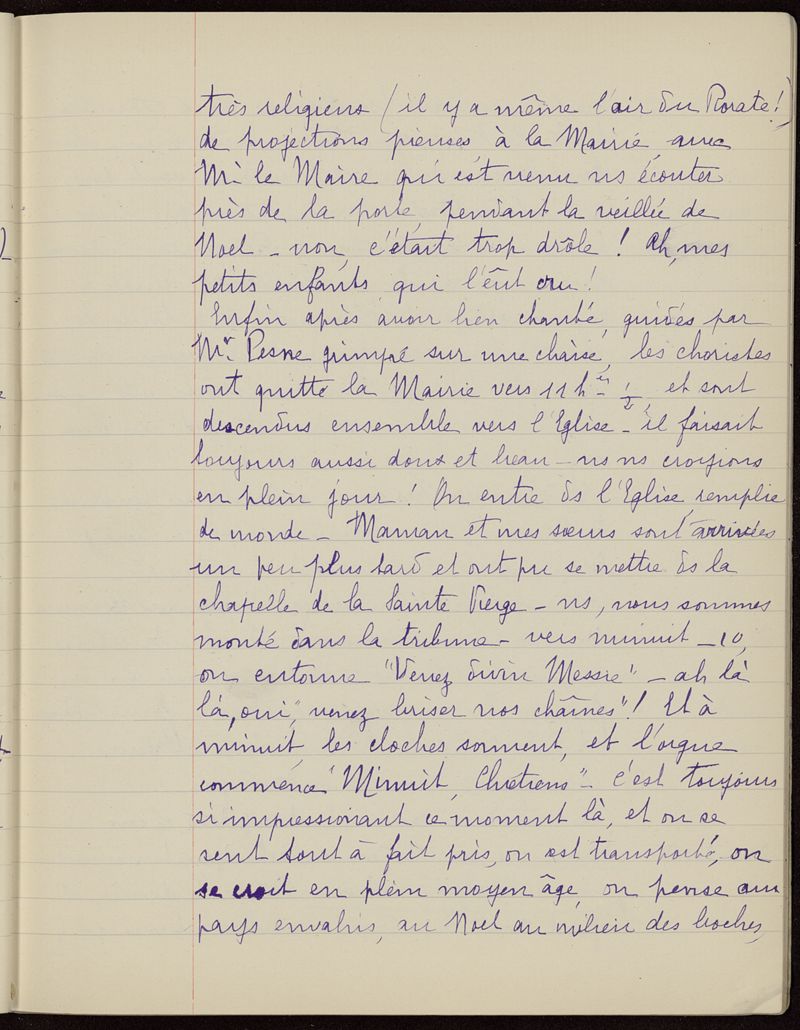 très religieux (il y a même l'air du Rorate!)
de projections pieuses à la Mairie, avec
Mr le Maire qui est venu ns écouter
près de la porte, pendant la veillée de
Noel - non, c'était trop drôle ! Ah, mes
petits enfants, qui l'eût cru !
Enfin après avoir bien chanté, guidés par
Mr. Pesne grimpé sur une chaise, les choristes
ont quitté la Mairie vers 11 h 1/2, et sont
descendus ensemble vers l'Eglise - il faisait
toujours aussi doux et beau - ns ns croyions
en plein jour ! On entre ds l'Eglise remplie
de monde - Maman et mes sœurs sont arrivées
un peu plus tard et ont pu se mettre ds la
chapelle de la Sainte Vierge - ns, nous sommes
monté dans la tribune - vers minuit - 10,
on entonne "Venez divin Messie" - ah là
là, oui, "venez briser nos chaînes" ! Et à
minuit, les cloches sonnent, et l'orgue
commence "Minuit, Chrétiens" - c'est toujours
si impressionant ce moment là, et on se
sent tout à fait pris, on est transporté, on
se croit en plein moyen âge, on pense aux
pays envahis, au Noel au milieu des boches,